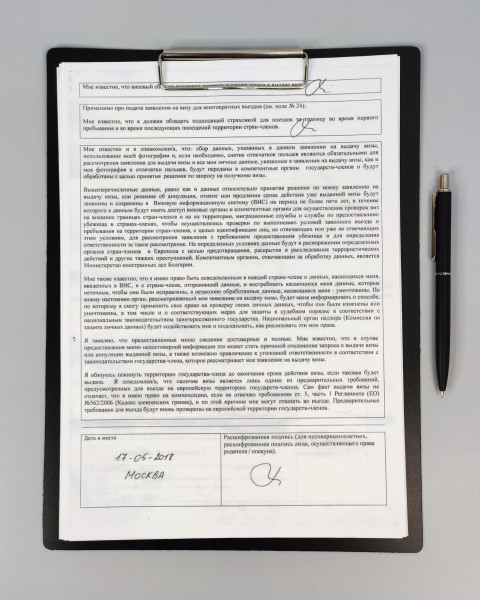 Мне известно, что визовый
Применимо при подаче заявления на визу для многократных въездов (см. поле № 24):
Мне известно, что я должен обладать подходящей страховкой для поездок за границу во время первого
пребывания и во время последующих посещений территории стран-членов.
Мне известно и я ознакомлен/а, что: сбор данных, указанных в данном заявлении на выдачу визы,
использование моей фотографии и, если необходимо, снятие отпечатков пальцев являются обязательными для
рассмотрения заявления для выдачи визы и все мои личные данные, указанные в заявлении на выдачу визы, как и
моя фотография и отпечатки пальцев, будут переданы в компетентные органы государств-членов и будут
обработаны с целью принятия решения по запросу на получение визы.
Вышеперечисленные данные, равно как и данные относительно принятия решения по моему заявлению на
выдачу визы, или решение об аннуляции, отмене или продлении срока действия уже выданной визы будут
занесены и сохранены в Визовую информационную систему (ВИС) на период не более пяти лет, в течение
которого к данным будут иметь доступ визовые органы и компетентные органы для осуществления проверок виз
на внешних границах стран-членов и на их территории, миграционные службы и службы по предоставлению
убежища в странах-членах, чтобы осуществлялись проверки по выполнению условий законного въезда и
пребывания на территории стран-членов, с целью идентификации лиц, не отвечающих или уже не отвечающих
этим условиям, для рассмотрения заявления о предоставлении убежища и для определения
ответственности за такое рассмотрение. На определенных условиях данные будут в распоряжении определенных
органов стран-членов и Европола с целью предотвращения, раскрытия и расследования террористических
действий и других тяжких преступлений. Компетентным органом, отвечающим за обработку данных, является
Министерство иностранных дел Болгарии.
Мне также известно, что я имею право быть осведомленным в каждой стране-члене о данных, касающихся меня,
введенных в ВИС, и о стране, отправившей данные, и востребовать касающиеся меня данные, которые
неточные, чтобы они были исправлены, а незаконно обработанные данные, касающиеся меня - уничтожены. По
моему настоянию орган, рассматривающий мое заявления на выдачу визы, будет меня информировать о способе,
по которому я смогу применить свое право на проверку своих личных данных, чтобы они были изменены или
уничтожены, в том числе и о соответствующих мерах для защиты в судебном порядке в соответствии с
национальным законодательством заинтересованного государства. Национальный орган надзора (Комиссия по
защите личных данных) будет содействовать мне и подсказывать, как реализовать эти мои права.
Я заявляю, что предоставленные мною сведения достоверные и полные. Мне известно, что в случае
предоставления мною недостоверной информации это может стать причиной отклонения запроса о выдаче визы
или аннуляции выданной визы, а также возможно привлечение к уголовной ответственности в соответствии с
законодательством государства-члена, которое рассматривает мое заявление на выдачу визы.
Я обязуюсь покинуть территорию государства-члена до окончания срока действия визы, если таковая будет
выдана. Я осведомлен/а, что наличие визы является лишь одним из предварительных требований,
предусмотренных для въезда на европейскую территорию государств-членов. Сам факт выдачи визы не
означает, что я имею право на компенсацию, если не отвечаю требованиям ст. 5, часть 1 Регламента (ЕО)
№562/2006 (Кодекс шенгенских границ), и по этой причине мне могут отказать во въезде. Предварительные
требования для въезда будут вновь проверены на европейской территории государств-членов.
Дата и место
17-05-2018
МОСКВА
Расшифрованная подпись (для несовершеннолетних,
расшифрованная подпись лица, осуществляющего права
родителя / опекуна).